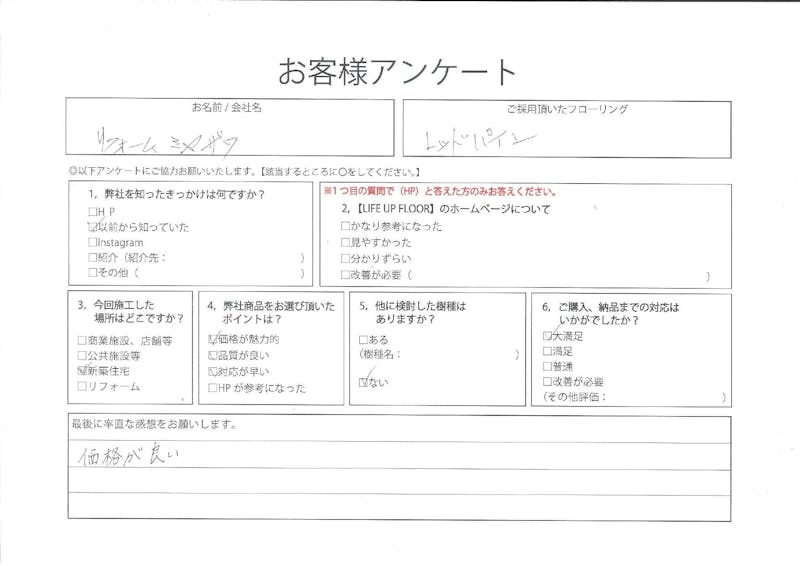 お客様アンケート
お名前 / 会社名
リフォーム ミヤザワ
ご採用頂いたフローリング
レッドパイン
◎以下アンケートにご協力お願いいたします。【該当するところに〇をしてください。】
1，弊社を知ったきっかけは何ですか？
□H P
☑以前から知っていた
□Instagram
□紹介（紹介先： ）
□その他（ ）
※1つ目の質問で（HP）と答えた方のみお答えください。
2，【LIFE UP FLOOR】のホームページについて
□かなり参考になった
□見やすかった
□分かりずらい
□改善が必要（ ）
3．今回施工した
場所はどこですか？
□商業施設、店舗等
□公共施設等
☑新築住宅
□リフォーム
4，弊社商品をお選び頂いた
ポイントは？
☑価格が魅力的
☑品質が良い
☑対応が早い
□HPが参考になった
5，他に検討した樹種は
ありますか？
□ある
（樹種名： ）
☑ない
6，ご購入、納品までの対応は
いかがでしたか？
☑大満足
□満足
□普通
□改善が必要
（その他評価： ）
最後に率直な感想をお願いします。
価格が良い